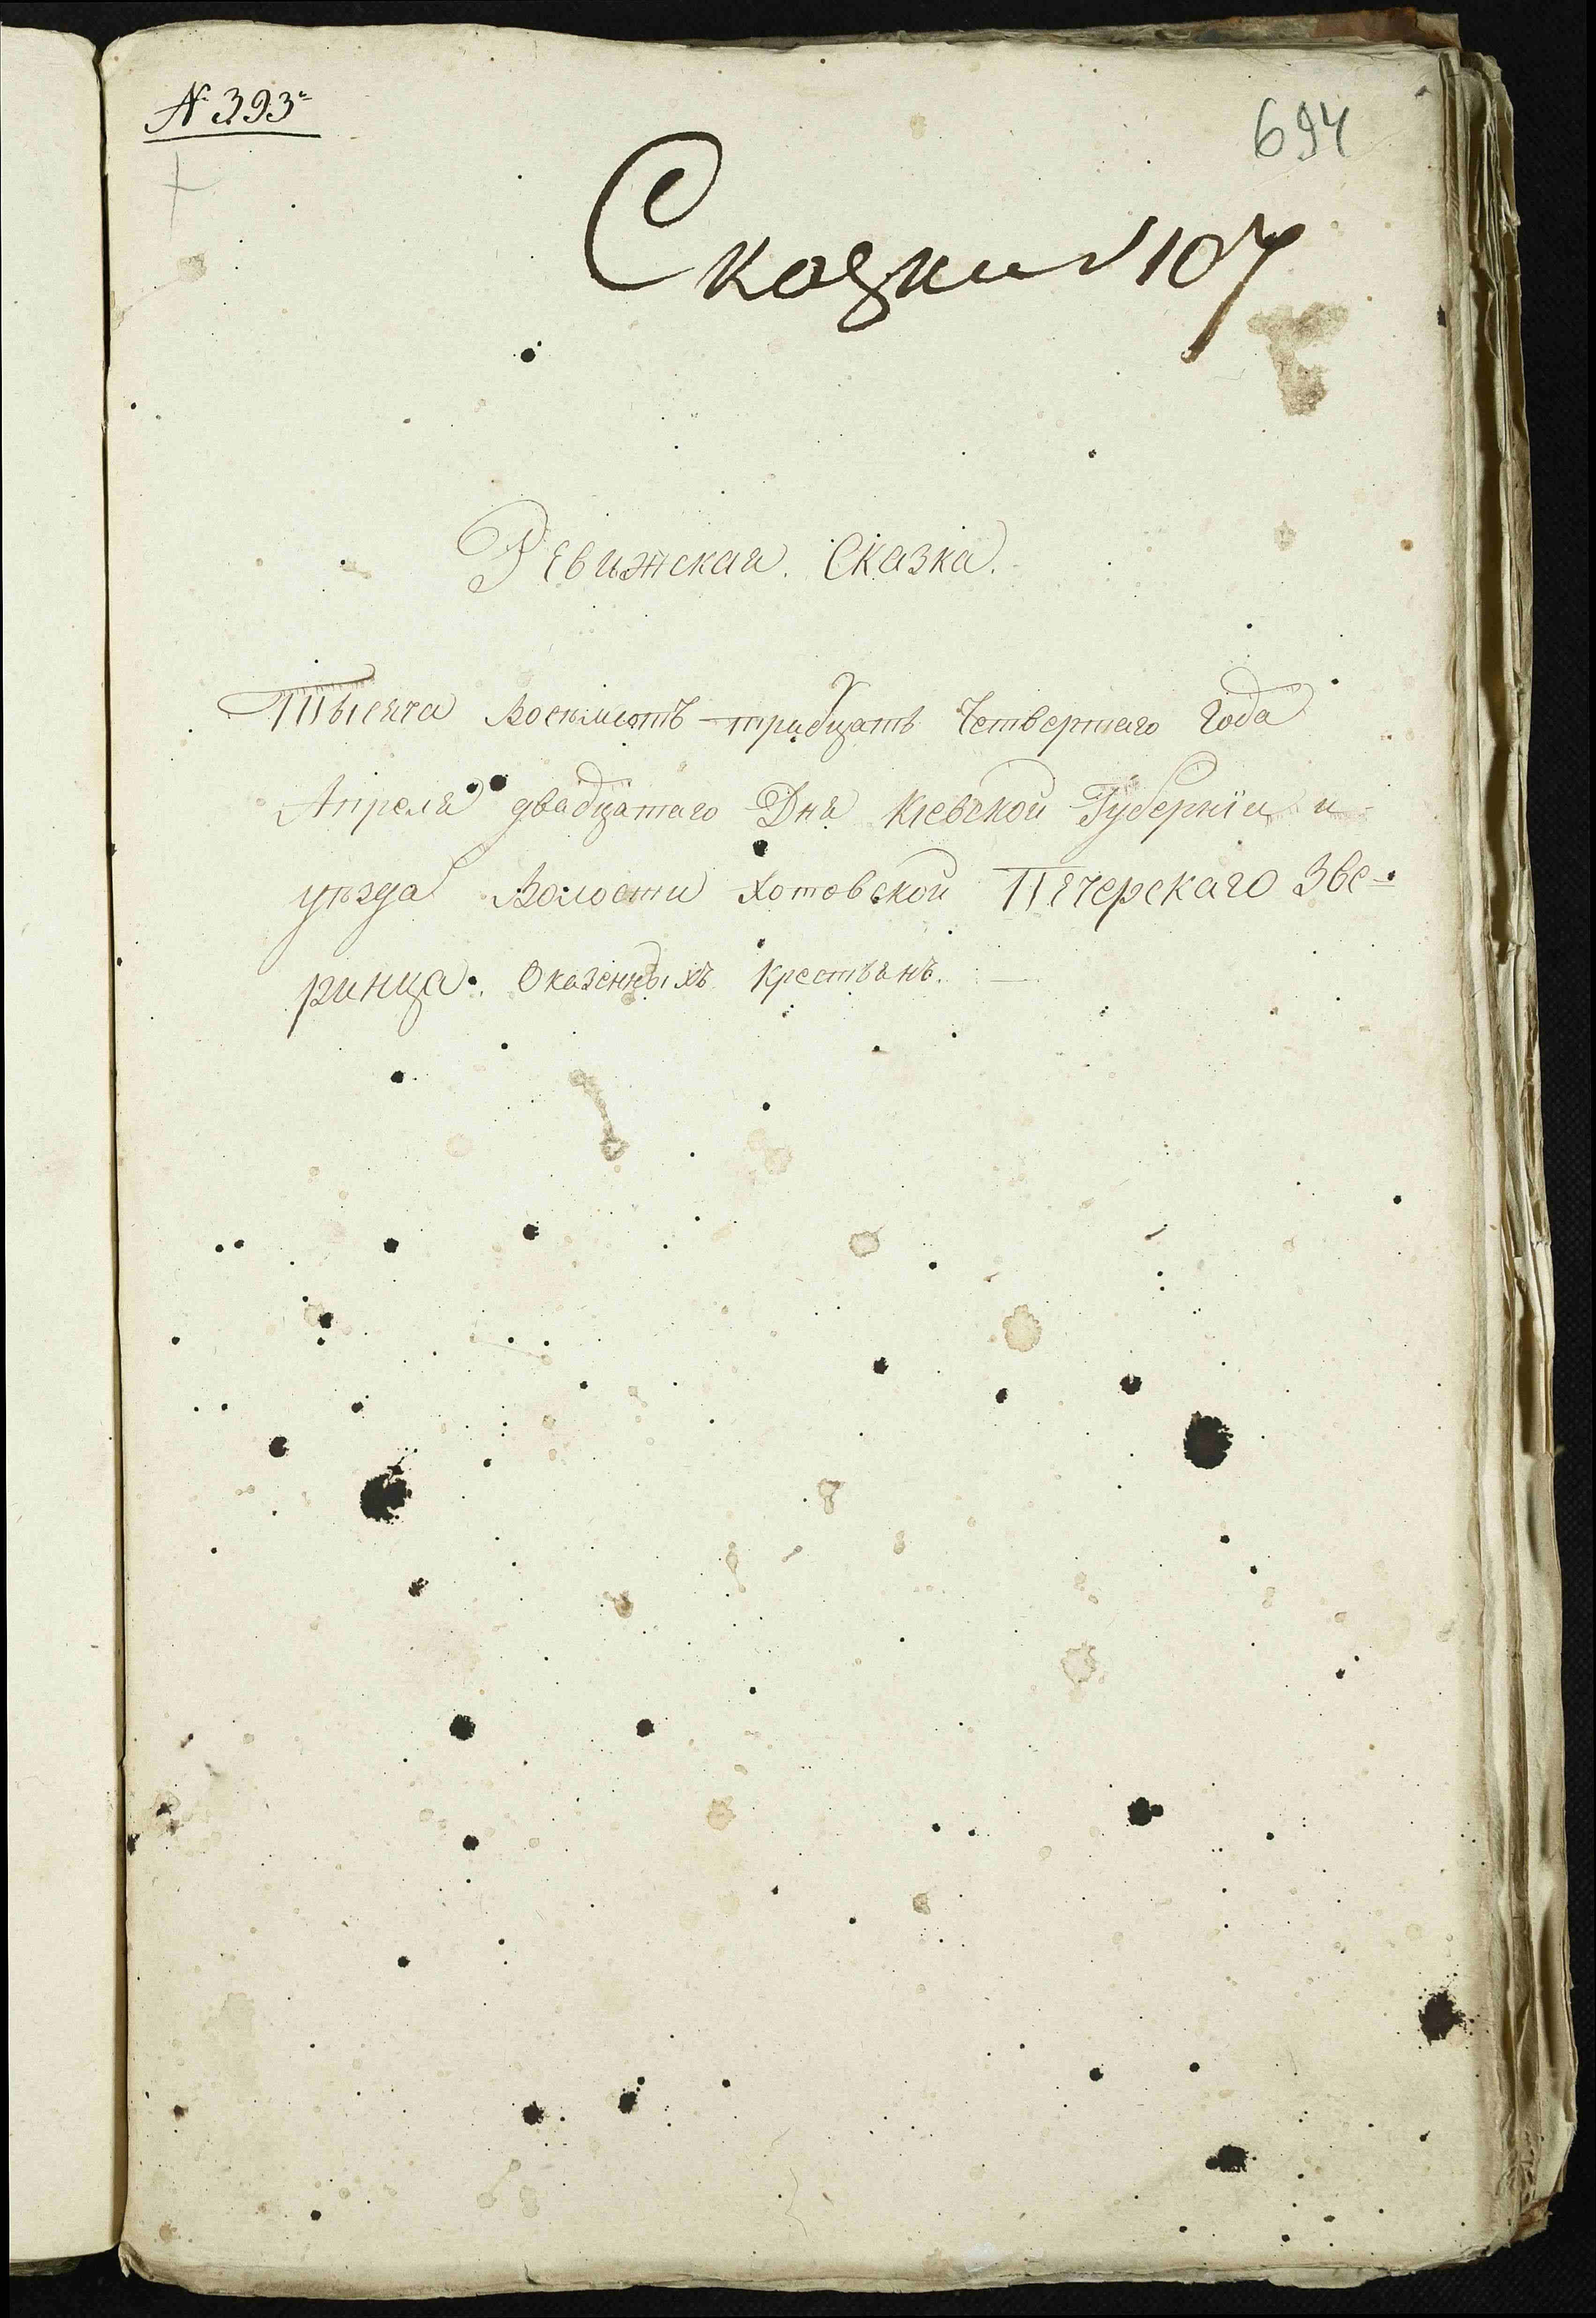 № 393
694
Сказки № 107
Ревижская. Сказка.
Тысяча Восемьсотъ тридцать Четвертаго Года
Апреля двадцатаго Дня Кіевской Губерніи и
уѣзда Волости Хотовской Печерскаго Зве-
ринца. О казенныхъ крестьянъ.